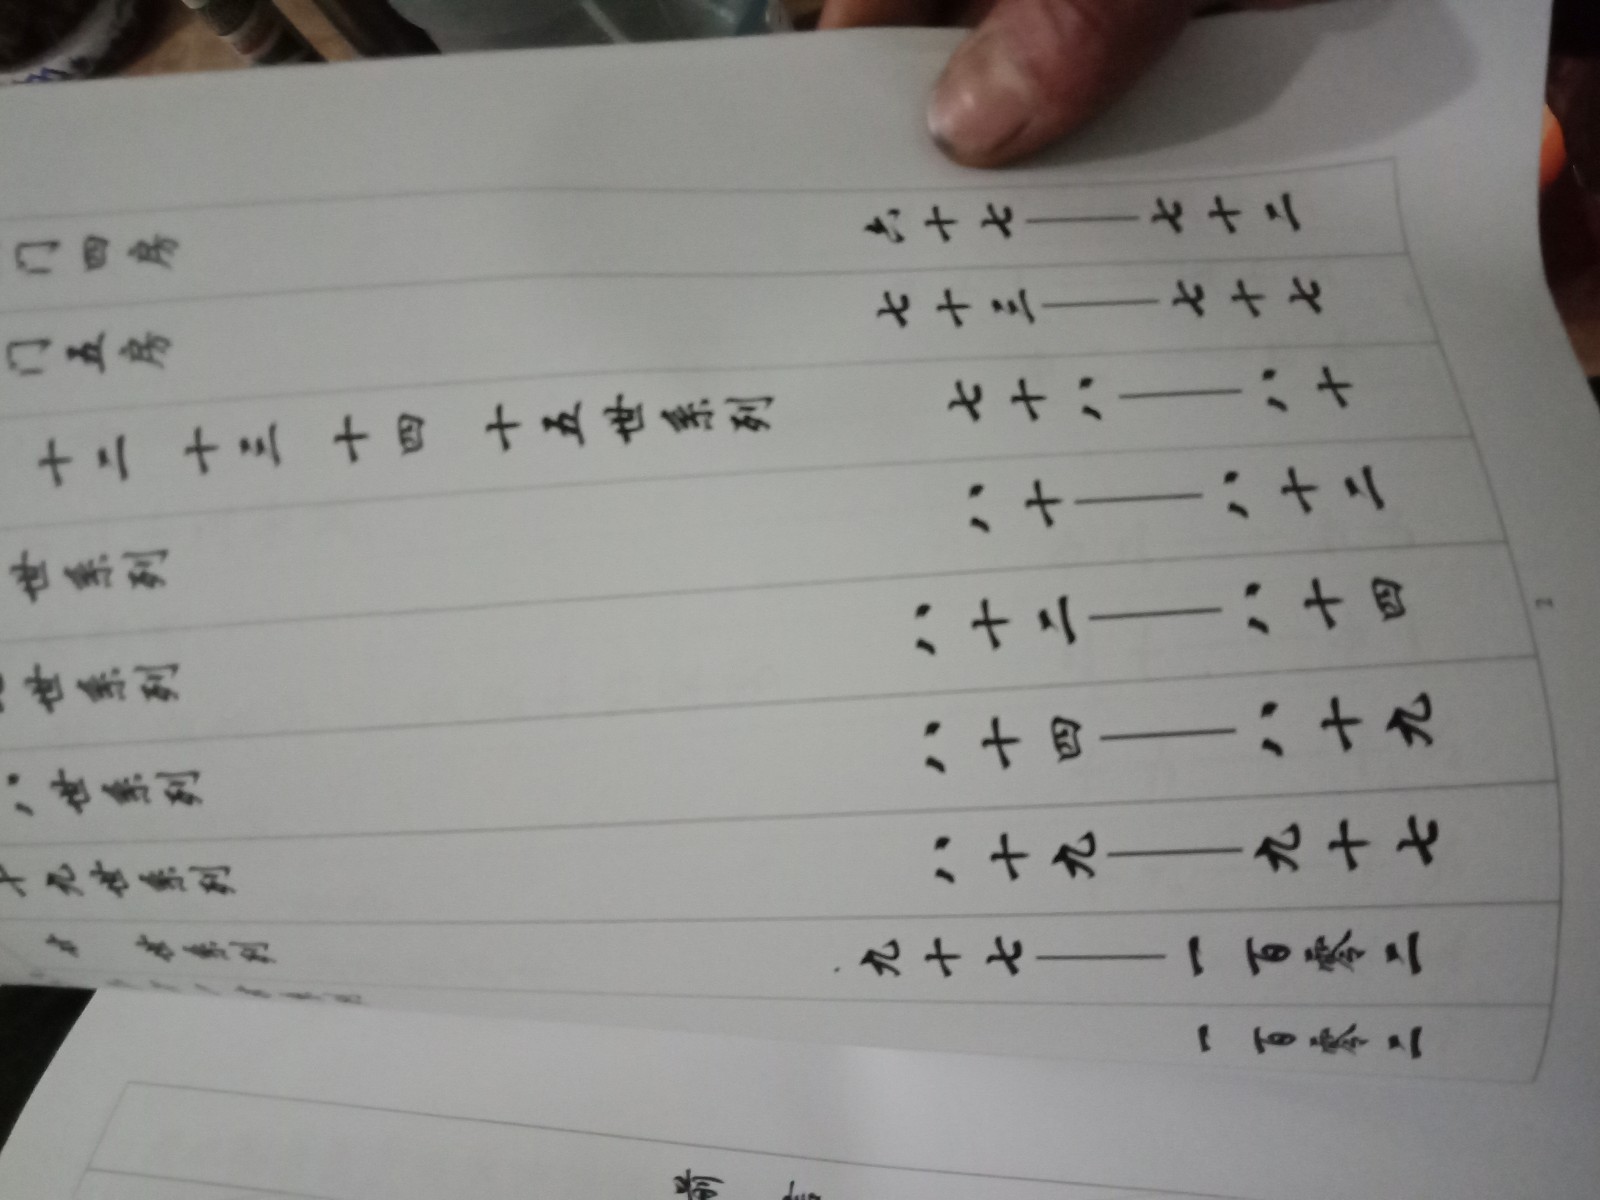 门四房 六十七——七十二
门五房 七十三——七十七
十二 十三 十四 十五世系列 七十八——八十
世系列 八十——八十二
世系列 八十二——八十四
八世系列 八十四——八十九
十九世系列 八十九——九十七
世系列 九十七——一百零二
一百零二
2
前言